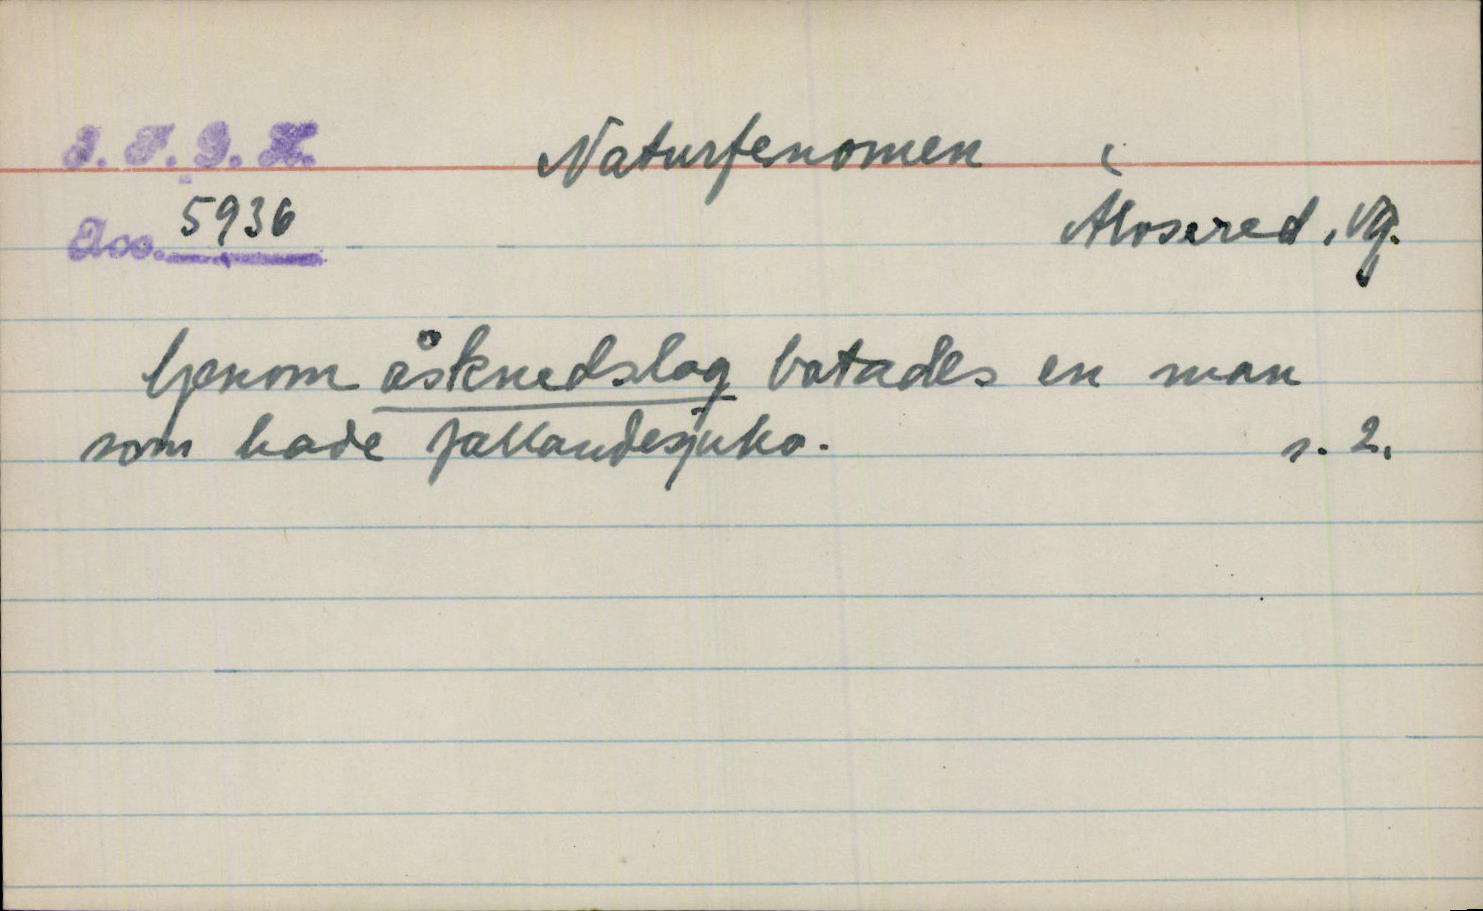 I. F. G. H. Naturfenomen i
Acc. 5936 Alvsered, Vg.
Genom åsknedslag botades en man
som hade fallandesjuka. s. 2.